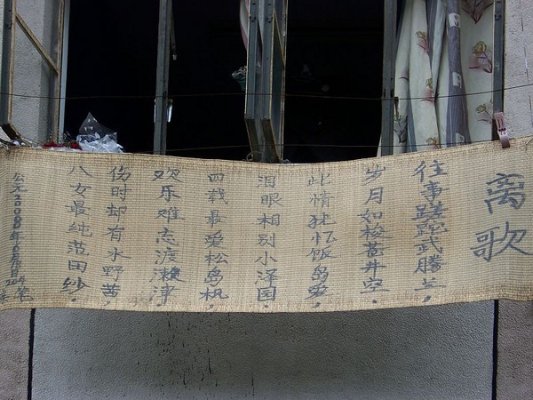 离歌
往事蹉跎武腾兰，
岁月如梭苍井空，
此情犹忆饭岛爱，
泪眼相别小泽园，
四载最爱松岛枫，
欢乐难忘渡濑津，
伤时却有水野茜，
八女最纯范田纱，
公元2008年